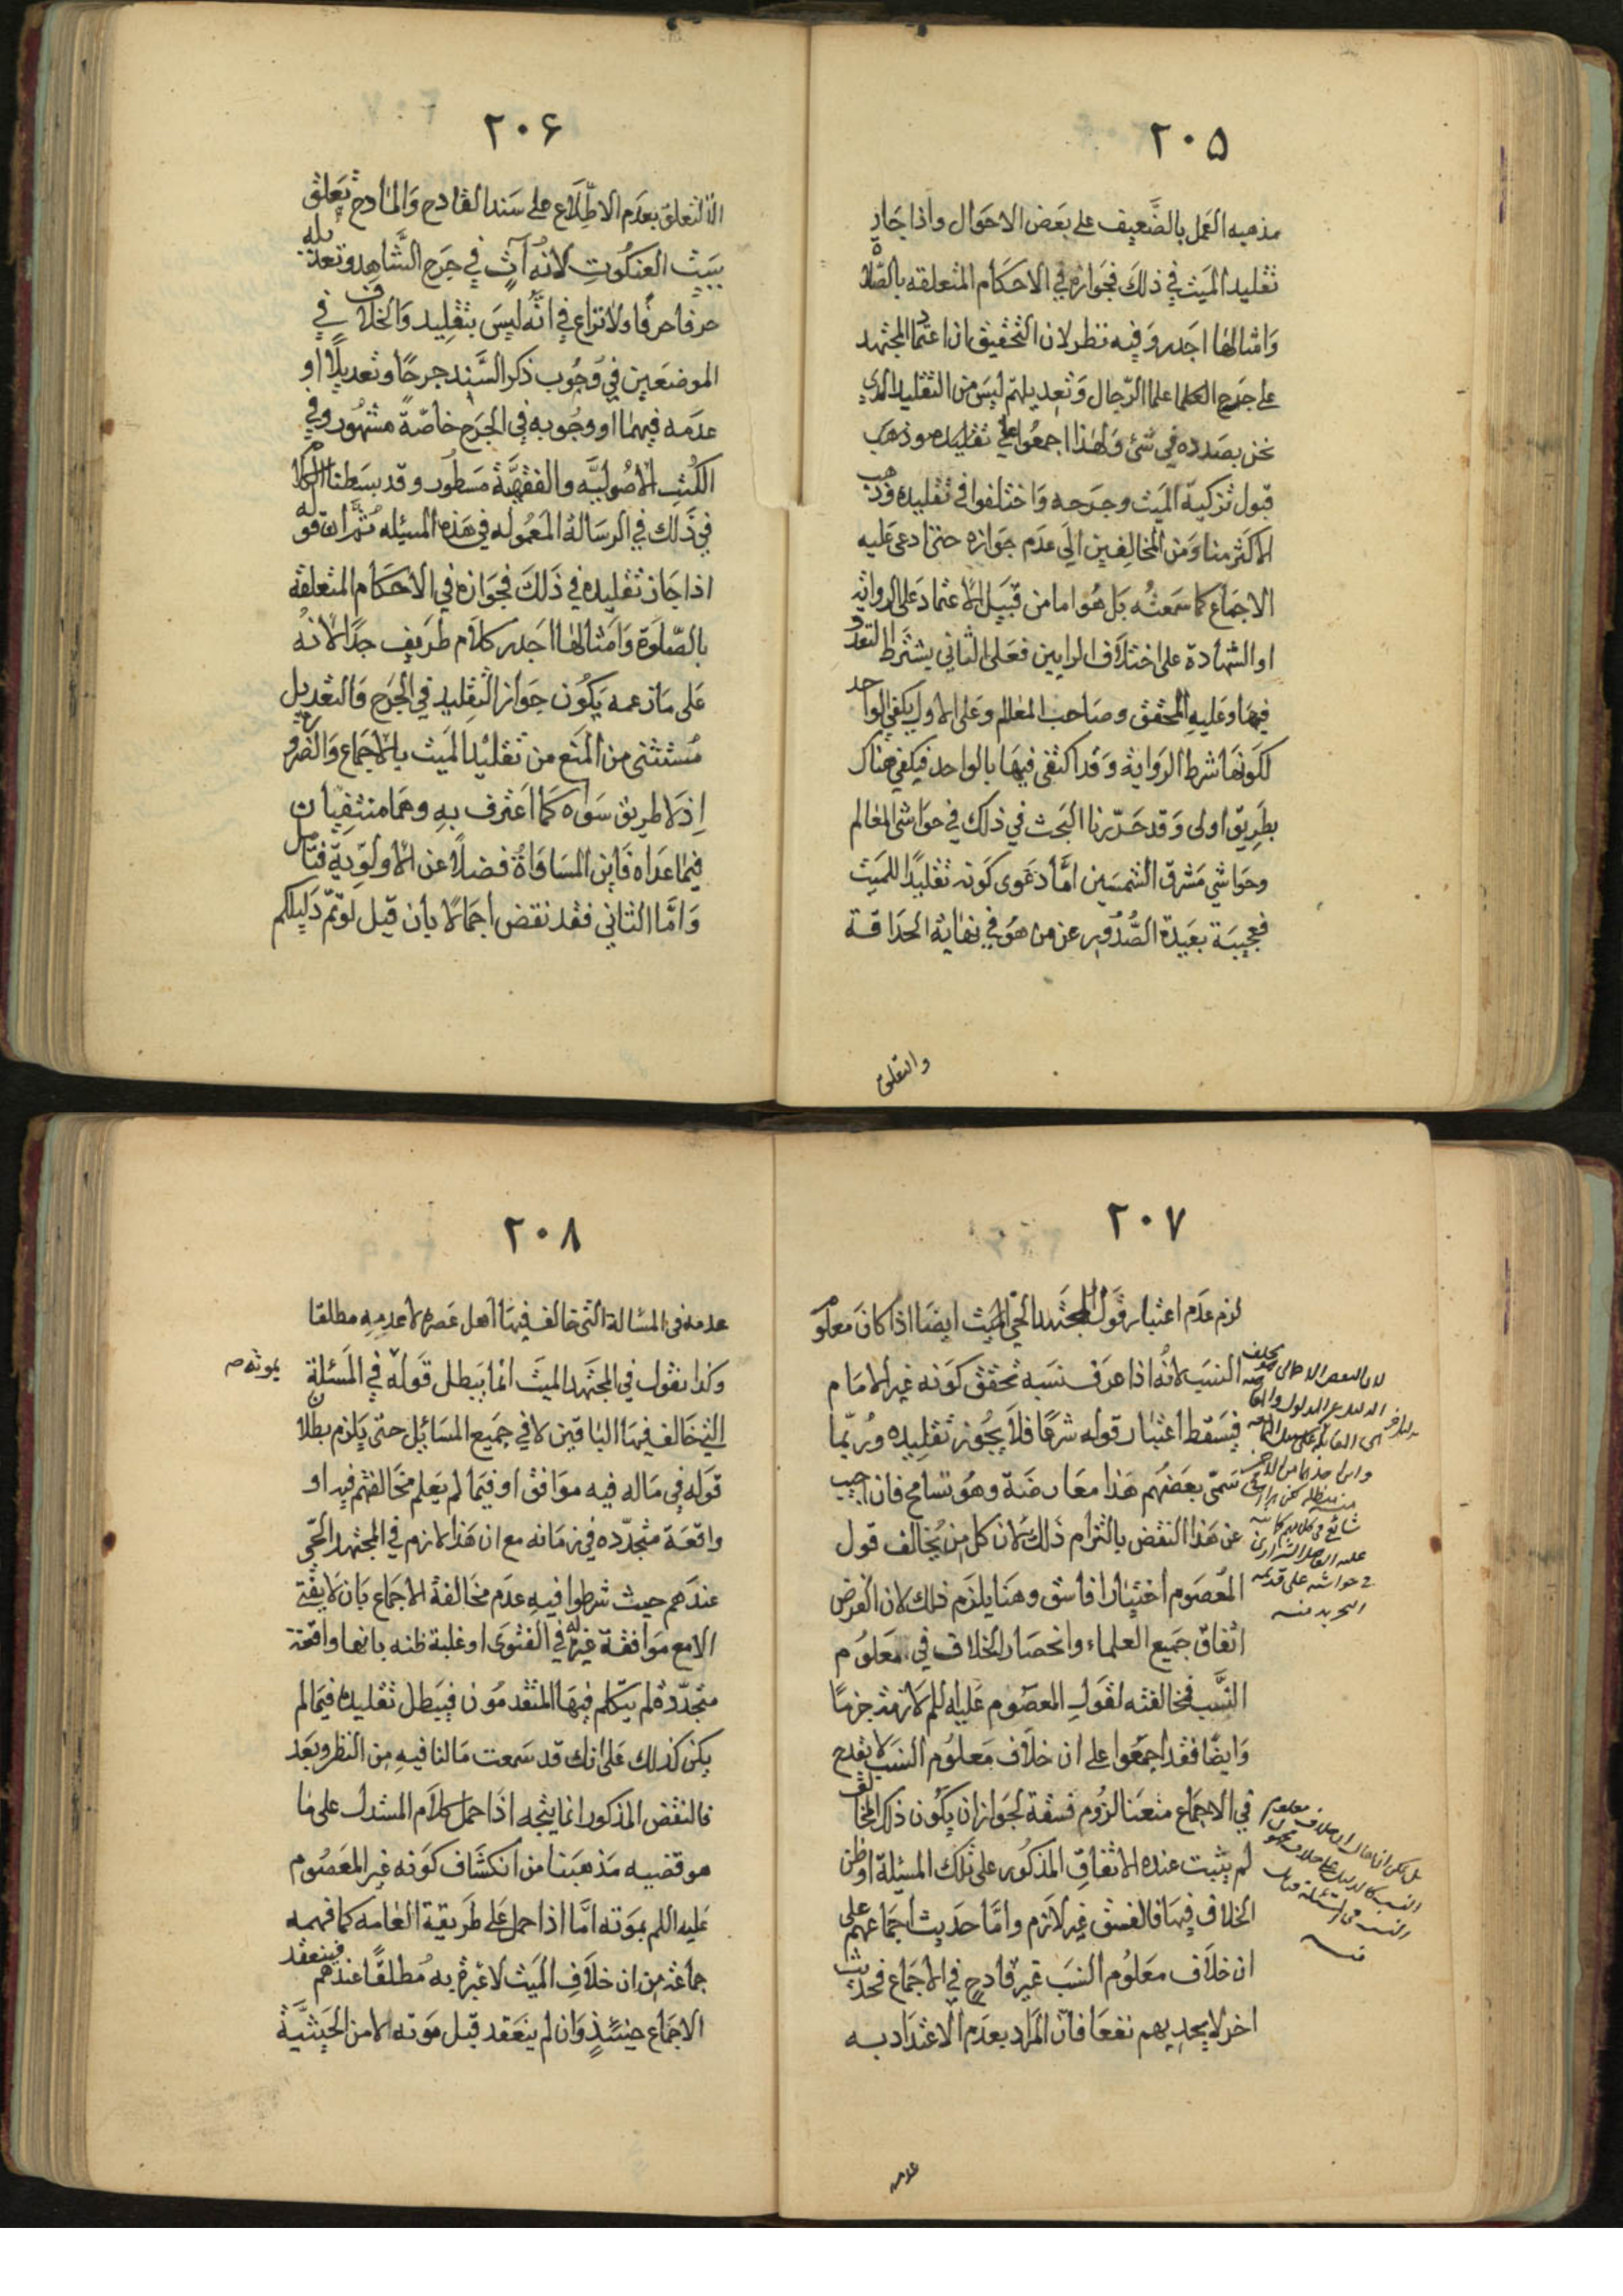 ٢٠۵
مذهبه العمل بالضعيف على بعض الاحوال واذا جاز
تقليد الميت في ذلك فجوازه في الاحكام المتعلقه بالصّلاة
وامثالها اجدر وفيه نظر لان التحقيق ان اعتماد المجتهد
على جرح العلما علما الرّجال وتعديلهم ليس من التقليد الذي
نحن بصدده في شئ ولهذا اجمعوا على
قبول تزكية الميت وجرحه واختلفوا في تقليده وذهب
الاكثر منا ومن المخالفين الى عدم جوازه حتى ادعى عليه
الاجماع كما سمعته بل هو اما من قبيل الاعتماد على الرواية
او الشهادة على اختلاف الرايين فعلى الثاني يشترط التعدد
فيها وعليه المحقق وصاحب المعالم وعلى الاول يكفي الواحد
لكونها شرط الرواية وقد اكتفى فيها بالواحد فيكفي هناك
بطريق اولى وقد حرّرنا البحث في ذلك في حواشي المعالم
وحواشي مشرق الشمسين امّا دعوى كونه تقليدًا للميت
فعجيبة بعيدة الصُّدور عن من هو في نهاية الحذاقة
والتعلق
٢٠۶
الا التعلق بعدم الاطّلاع على سند القادح والمادح تعلق
ببيت العنكبوت لانه آتٍ في جرح الشّاهد وتعديله
حرفا حرفًا ولا نزاع في انّه ليس بتقليد والخلاف في
الموضعين في وجوب ذكر السّند جرحًا وتعديلًا او
عدمه فيهما او وجوبه في الجرح خاصّة مشهور وفي
الكتب الاصوليّه والفقهيّة مسطور وقد بسطنا الكلام
في ذلك في الرسالة المعموله في هذه المسئله ثمّ ان قوله
اذا جاز تقليده في ذلك فجوازه في الاحكام المتعلقة
بالصّلوة وامثالها اجدر كلام طريف جدًا لانه
على ما زعمه يكون جواز التقليد في الجرح والتعديل
مستثنى من المنع من تقليد الميت بالاجماع والضرورة
اذ لا طريق سواه كما اعترف به وهما منتفيان
فيما عداه فاين المساواة فضلًا عن الاولويّة فتامل
وامّا الثاني فقد نقض اجمالًا بان قيل لو تمّ دليلكم
٢٠٧
لزم عدم اعتبار قول المجتهد الحي الميت ايضا اذا كان معلوم
النسب لانه اذا عرف نسبه تحقق كونه غير الامام
فيسقط اعتبار قوله شرعًا فلا يجوز تقليده وربّما
سمّى بعضهم هذا معارضة وهو تسامح فان اجيب
عن هذا النقض بالتزام ذلك لان كل من يخالف قول
المعصوم اختيارا فاسق وهنا يلزم ذلك لان الفرض
اتفاق جميع العلماء وانحصار الخلاف في معلوم
النّسب فمخالفته لقول المعصوم عليه السلم لازمة جزمًا
وايضًا فقد اجمعوا على ان خلاف معلوم النسب لا يقدح
في الاجماع منعنا لزوم فسقه لجواز ان يكون ذلك المخالف
لم يثبت عنده الاتفاق المذكور على تلك المسئلة او ظن
الخلاف فيها فالفسق غير لازم وامّا حديث اجماعهم على
ان خلاف معلوم النسب غير قادح في الاجماع فحديث
اخر لا يجديهم نفعا فان المراد بعدم الاعتداد به
عدمه
٢٠٨
عدمه في المسالة التي خالف فيها اهل عصره لا عدمه مطلقا
وكذا نقول في المجتهد الميت انما يبطل قوله في المسئلة
بموته صح
التي خالف فيها الباقين لا في جميع المسائل حتى يلزم بطلان
قوله في ماله فيه موافق او فيما لم يعلم مخالفتهم فيه او
واقعة متجدّده في زمانه مع ان هذا لازم في المجتهد الحّي
عندهم حيث شرطوا فيه عدم مخالفة الاجماع بان لا يفتي
الا مع موافقة غيره له في الفتوى او غلبة ظنه بانها واقعة
متجدّدة لم يتكلم فيها المتقدمون فيبطل تقليده فيما لم
يكن كذلك على انك قد سمعت مالنا فيه من النظر وبعد
فالنقض المذكور انما يتجه اذا حمل كلام المستدل على ما
هو قضيه مذهبنا من انكشاف كونه غير المعصوم
عليه السلم بموته امّا اذا حمل على طريقة العامه كما فهمه
جماعة من ان خلاف الميت لا عبرة به مطلقًا عندهم فينعقد
الاجماع حينئذٍ وان لم ينعقد قبل موته لا من الحيثيّة